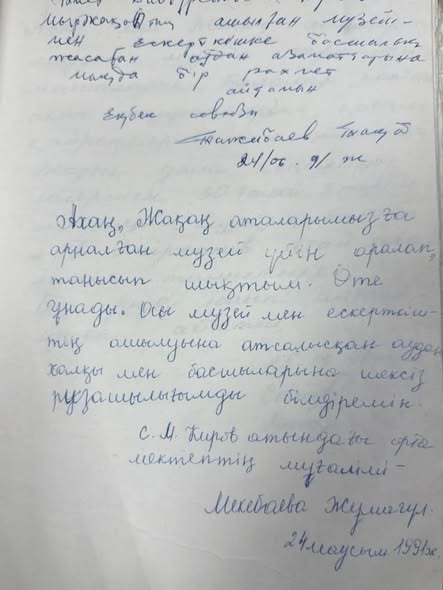 Мыржақаптың ашылған музей-
мен ескерткішке басшылық
жасаған аудан азаматтарына
мыңда бір рахмет
айтамын
Еңбек
24/06. 91 ж
Ахаң, Жақаң аталарымызға
арналған музей үйін аралап,
танысып шықтым. Өте
ұнады. Осы музей мен ескерткіш-
тің ашылуына атсалысқан аудан
халқы мен басшыларына шексіз
рузашылығымды білдіремін.
С. М. Киров атындағы орта
мектептің мұғалімі –
Мекебаева Жұмагүл.
24 маусым 1991ж.